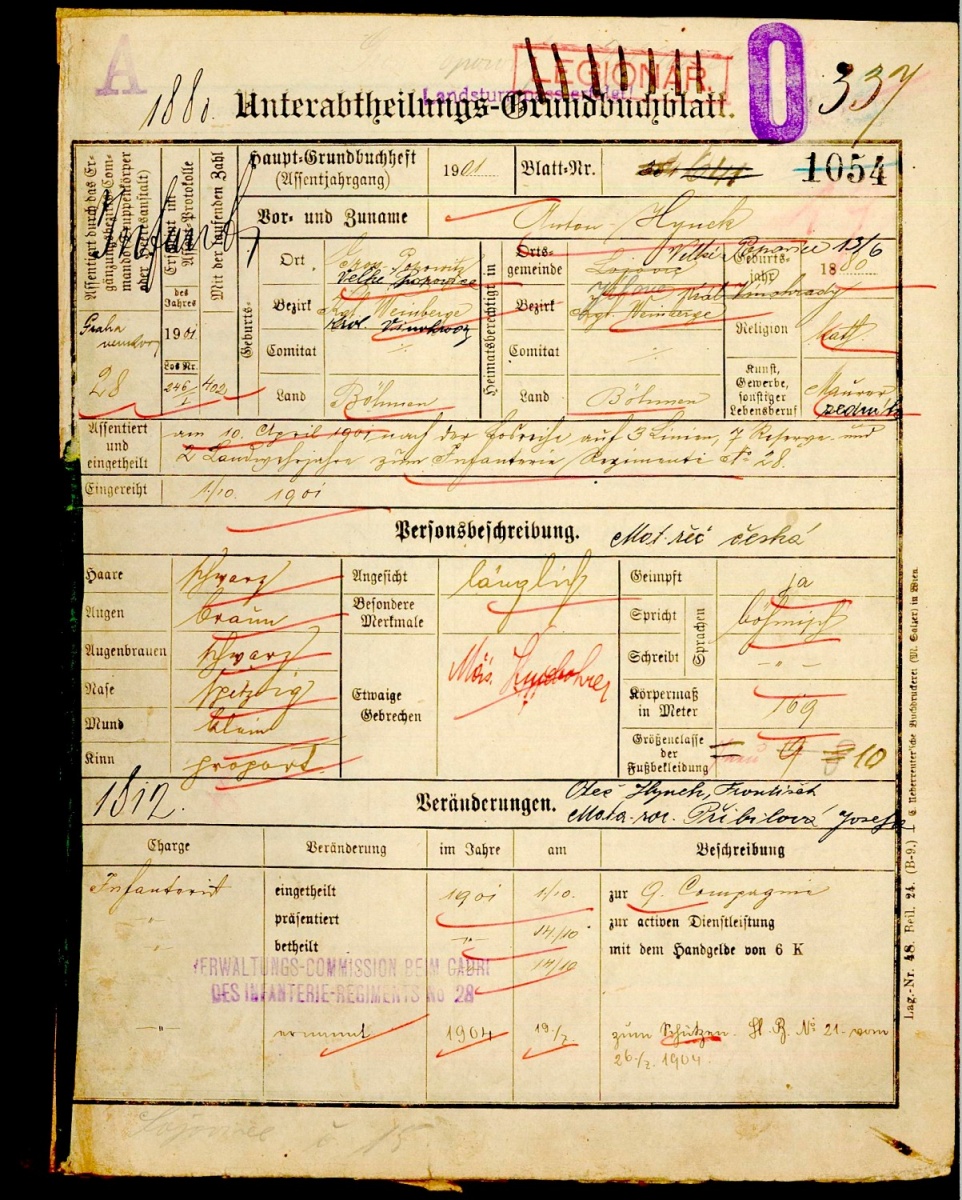 A
LEGIONÁŘ.
337
1880.
Unterabtheilungs-Grundbuchblatt.
Assentiert durch das Ergänzungsbezirks-Commando (Truppenkörper oder Heeresanstalt)
Mit der laufenden Zahl
Haupt-Grundbuchheft
(Assentjahrgang)
1901
Blatt-Nr.
1054
Vor- und Zuname
Anton Hynek
Geburts-
Ort
Velké Popovice
Bezirk
Kgl. Weinberge
Král.
Comitat
Land
Böhmen
Heimatsberechtigt in
Ortsgemeinde
Lojovic
Velké Popovice
Bezirk
Král Vinohrady
Kgl. Weinberge
Comitat
Land
Böhmen
Geburtsjahr
13/6
1880
Religion
kath
Kunst, Gewerbe, sonstiger Lebensberuf
Maurer
zedník
des Jahres
1901
Los Nr.
246/1
402
28
Assentiert und eingetheilt
am 10. April 1901 nach der Losreihe auf 3 Linien, 7 Reserve- und
2 Landwehrjahre zum Infanterie Regimente No 28.
Eingereiht
1/10. 1901
Personsbeschreibung.
Mat. řeč česká
Haare
schwarz
Augen
braun
Augenbrauen
schwarz
Nase
spitzig
Mund
klein
Kinn
proport.
Angesicht
länglich
Besondere Merkmale
Etwaige Gebrechen
Geimpft
ja
Spricht
Sprachen
böhmisch
Schreibt
- " -
Körpermaß in Meter
169
Größenclasse der Fußbekleidung
9
10
1812.
Veränderungen.
Otec Hynek, František
Mata roz. Přibilová Josefa
Charge
Veränderung
im Jahre
am
Beschreibung
Infanterist
eingetheilt
1901
1/10.
zur 9. Compagnie
-"-
präsentiert
-"-
14/10
zur activen Dienstleistung
-"-
betheilt
14/10
mit dem Handgelde von 6 K
VERWALTUNGS-COMMISSION BEIM CADRE
DES INFANTERIE-REGIMENTS No 28
-"-
ernannt
1904
zum Schützen. No 21 vom
1904.
Lag.-Nr. 48. Beil. 24. (B-9.)
in Wien.
Lojovice č 15